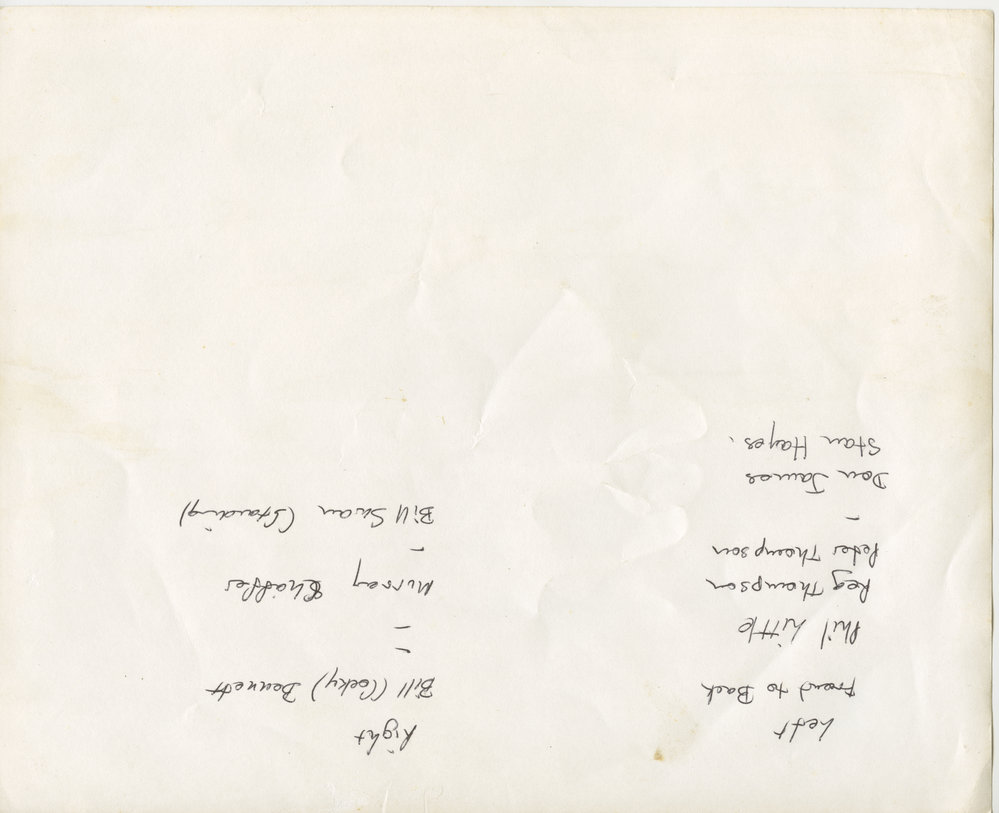 Left
Front to Back
Phil Little
Reg Thompson
Peter Thompson
–
Don James
Stan Hayes.
Right
Bill (Cocky) Bennett
–
–
Murray
–
Bill Swan (Standing)